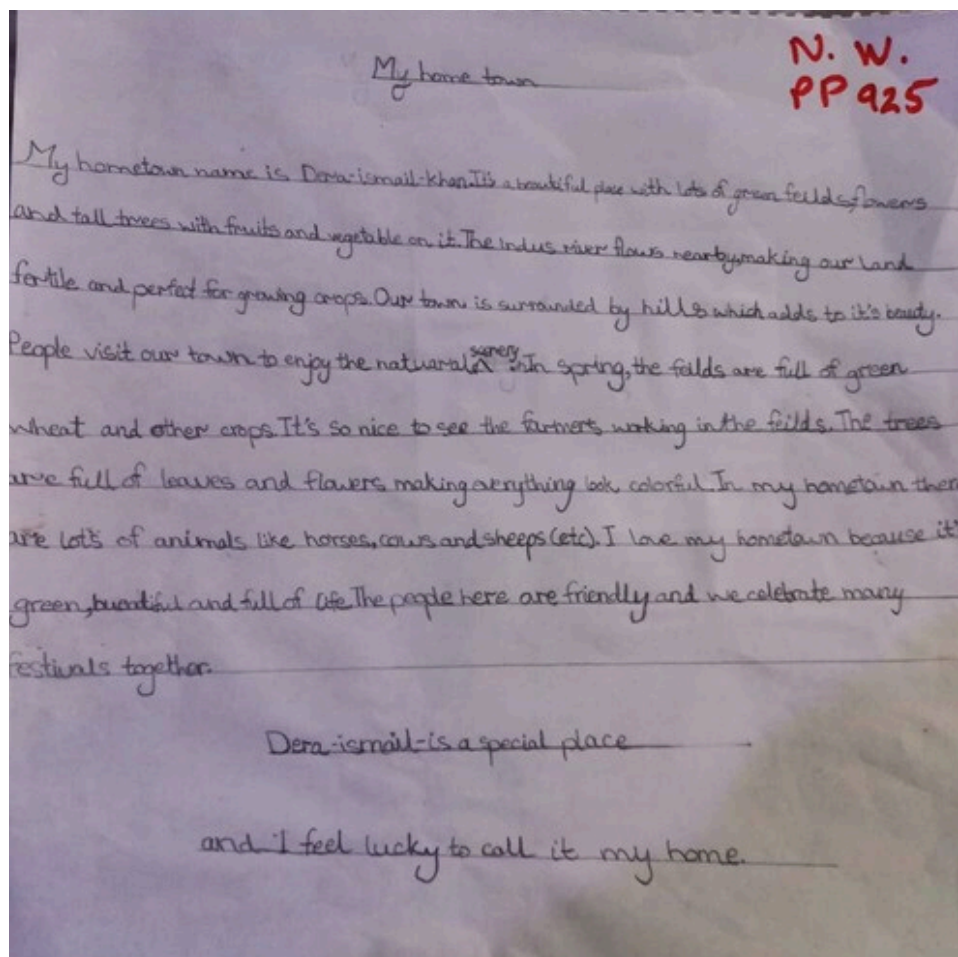 My home town
N. W.
PP 925
My hometown name is Dera-ismail-khan. It's a beautiful place with lots of green feilds, flowers
and tall trees with fruits and vegetable on it. The Indus river flows nearby, making our land
fertile and perfect for growing crops. Our town is surrounded by hills which adds to it's beauty.
People visit our town to enjoy the natuaral scenery. In spring, the feilds are full of green
wheat and other crops. It's so nice to see the farmers working in the feilds. The trees
are full of leaves and flowers making everything look colorful. In my hometown ther
are lots of animals like horses, cows and sheeps (etc). I love my hometown because it'
green, bueatiful and full of life. The people here are friendly and we celebrate many
festivals together.
Dera-ismail-is a special place
and I feel lucky to call it my home.